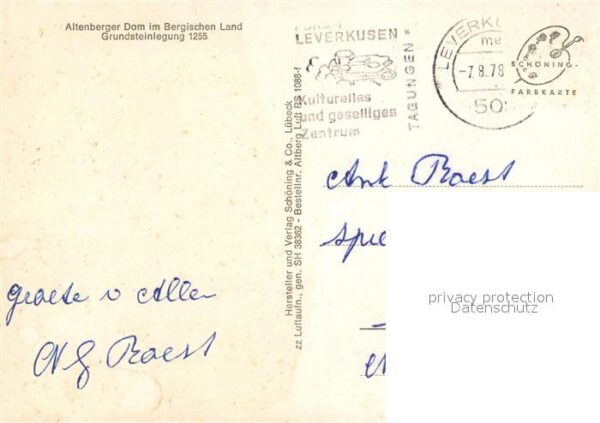 Altenberger Dom im Bergischen Land
Grundsteinlegung 1255
FORUM
LEVERKUSEN
Kulturelles
und geselliges
Zentrum
TAGUNGEN
LEVERKU
-7.8.78
509
SCHÖNING
FARBKARTE
Hersteller und Verlag Schöning & Co., Lübeck
zz Luftaufn., gen. SH 38362 - Bestellnr. Altberg Luft RS 1088-f
Ant Roest
Spie
groete v Allen
Roest
privacy protection
Datenschutz